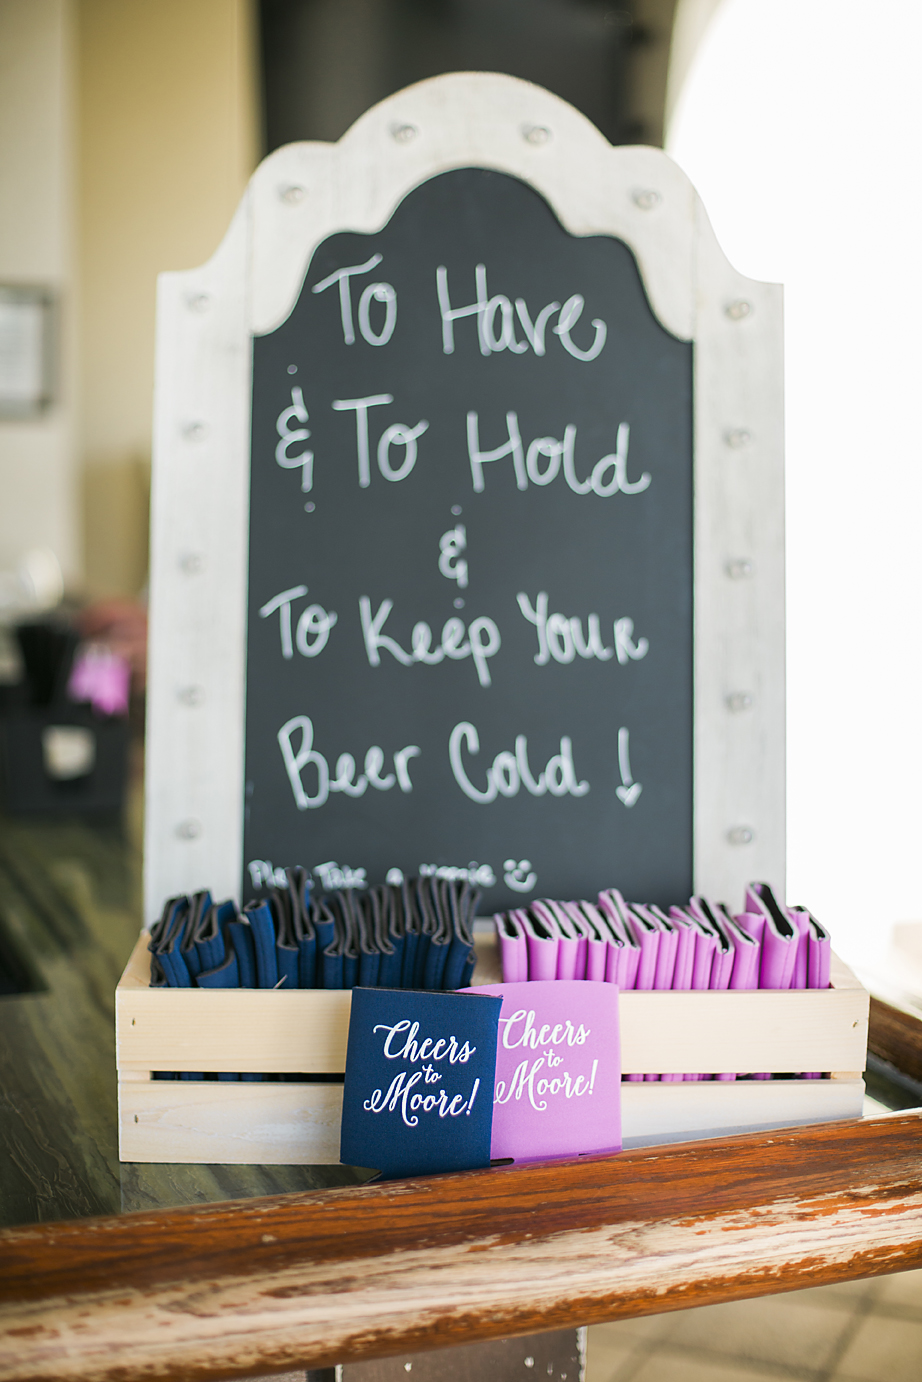 To Have
& To Hold
&
To Keep Your
Beer Cold!
Take a
Cheers
to
Moore!
Cheers
to
Moore!